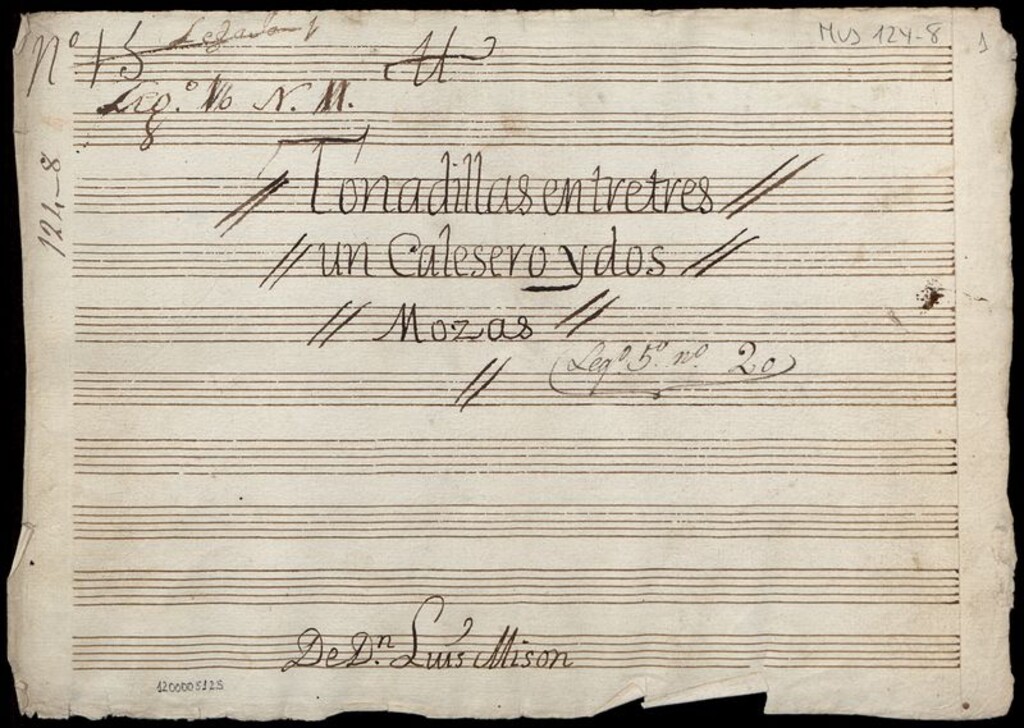 Nº 15 Legado 1º
MUS 124-8
1
Leg.º 16 N. 11.
8
124-8
// Tonadillas entre tres //
// un Calesero y dos //
// Mozas //
//
Legº. 5º. nº. 20
De Dn. Luis Mison
1200005125